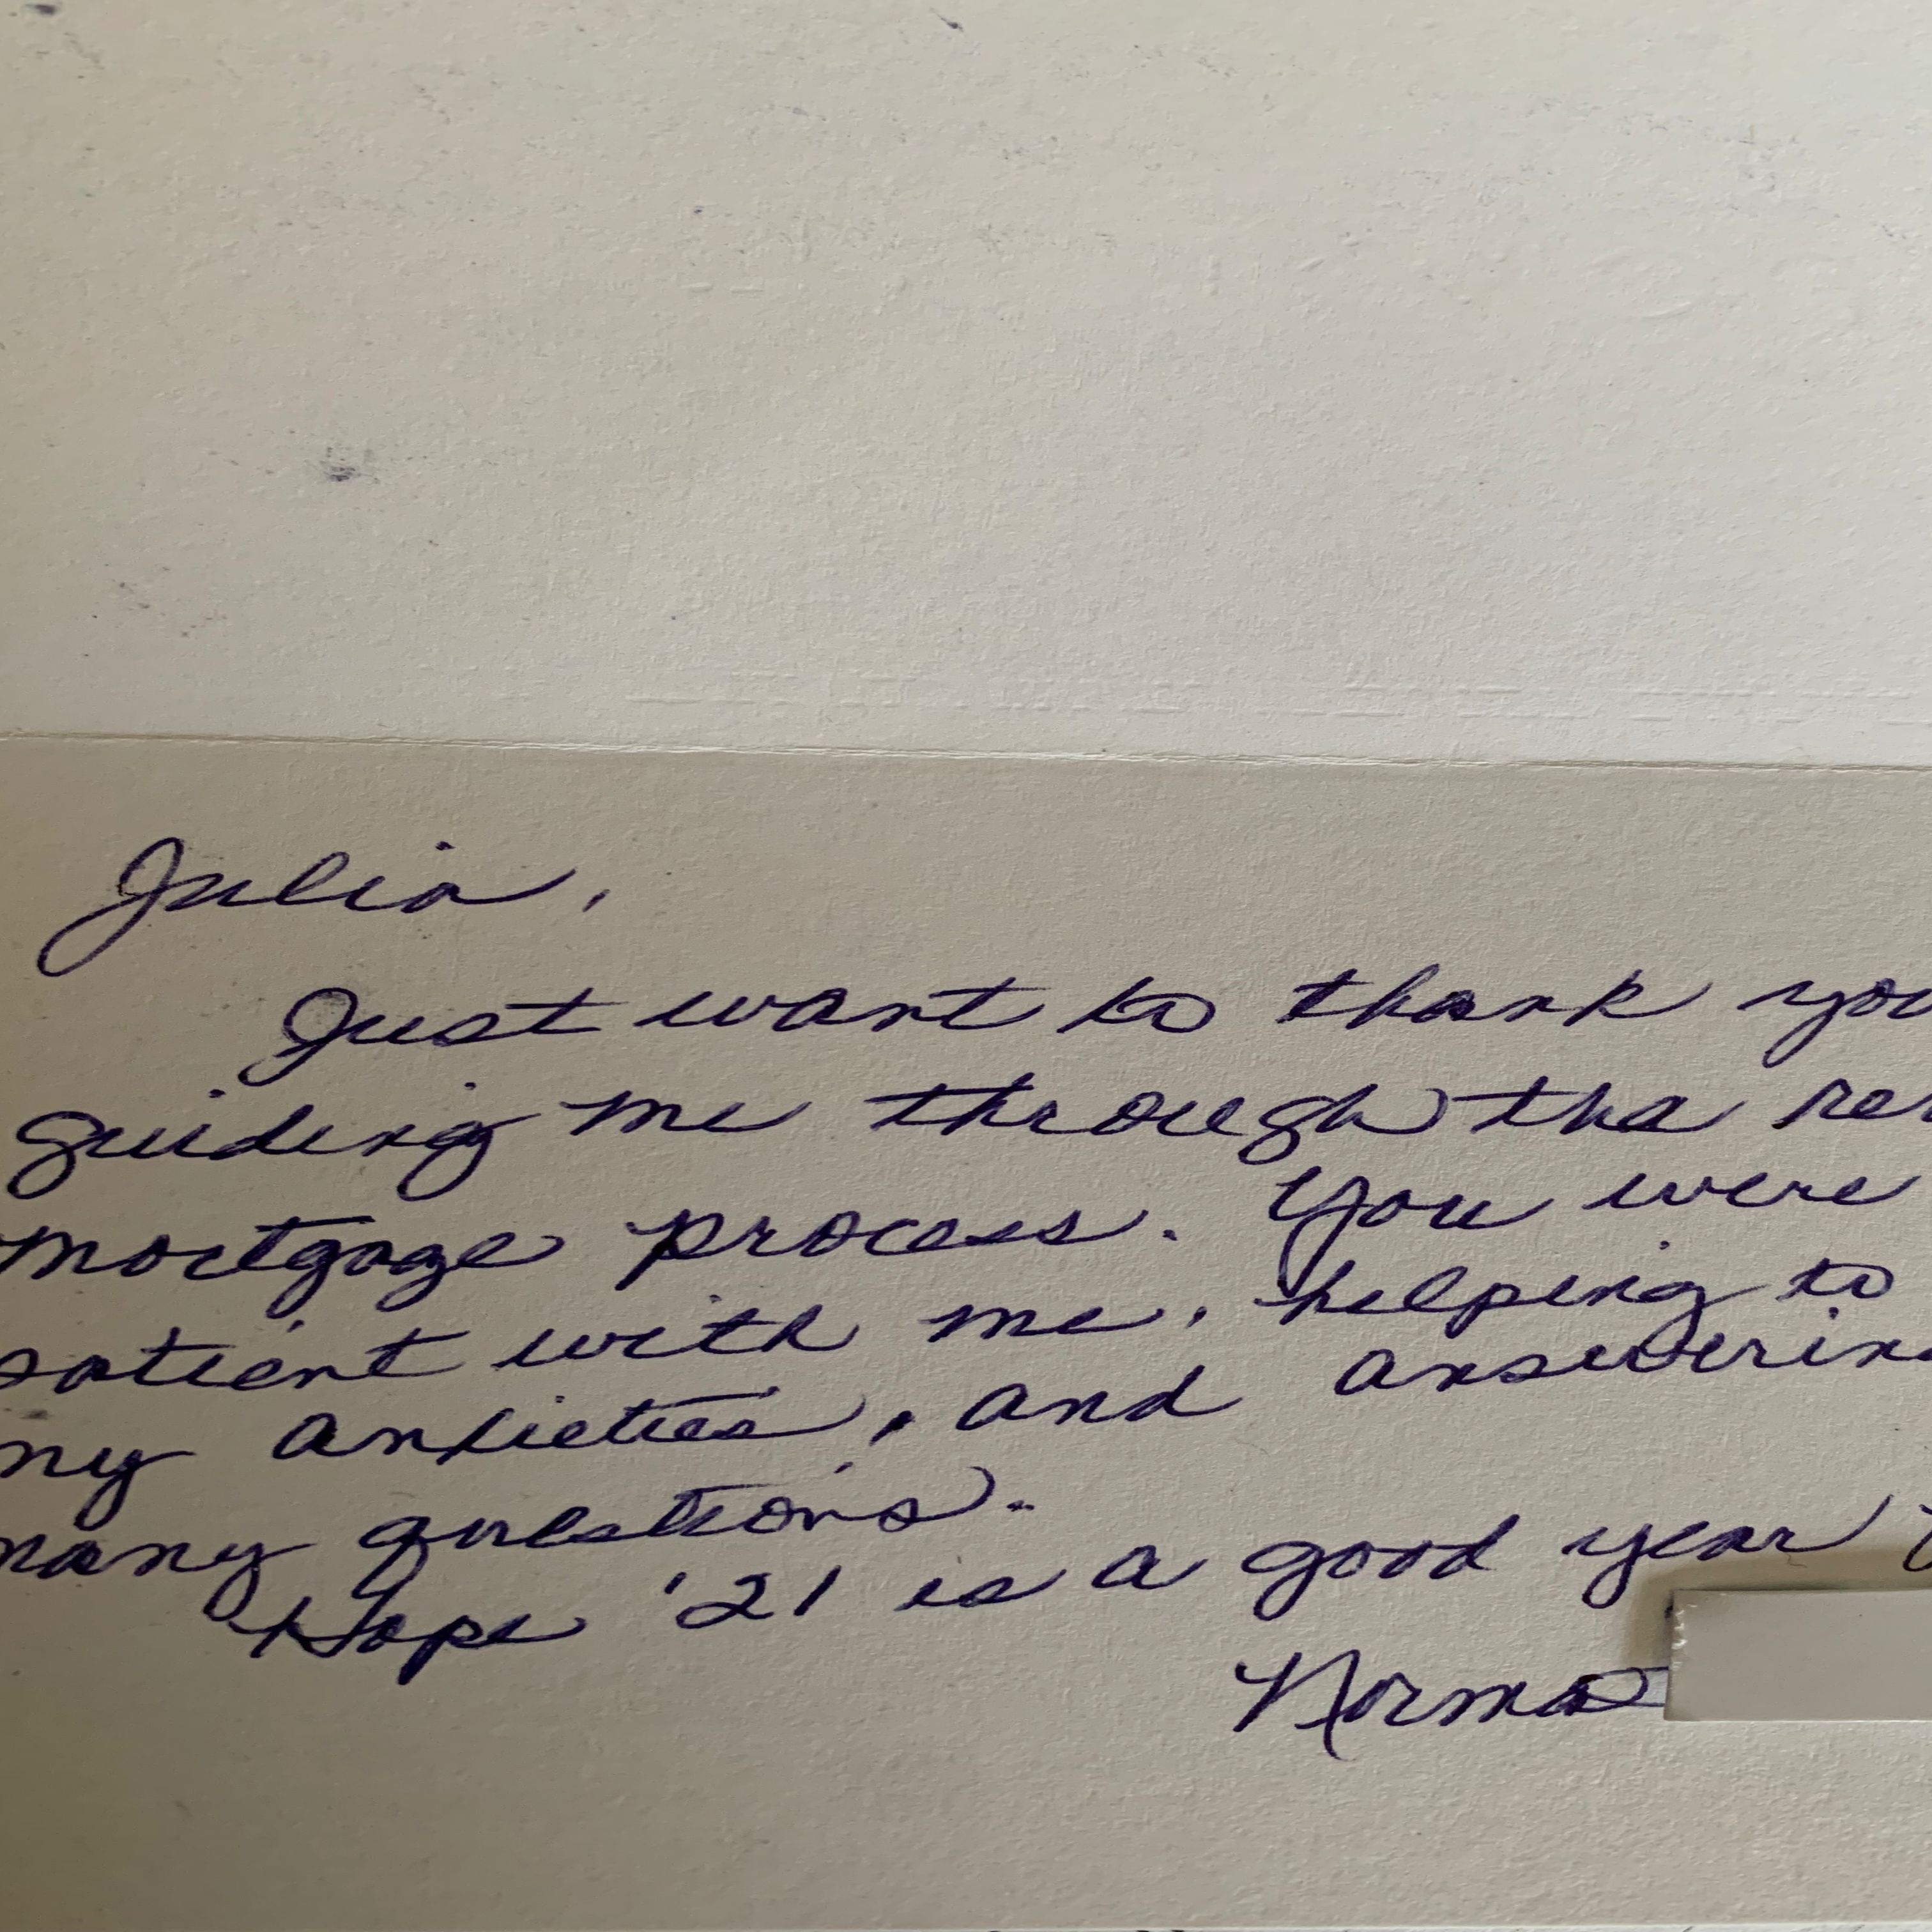 Julia,
Just want to thank you
guiding me through the
mortgage process. You were
patient with me, helping to
my anxieties, and answering
many questions.
Hope '21 is a good year
Norma